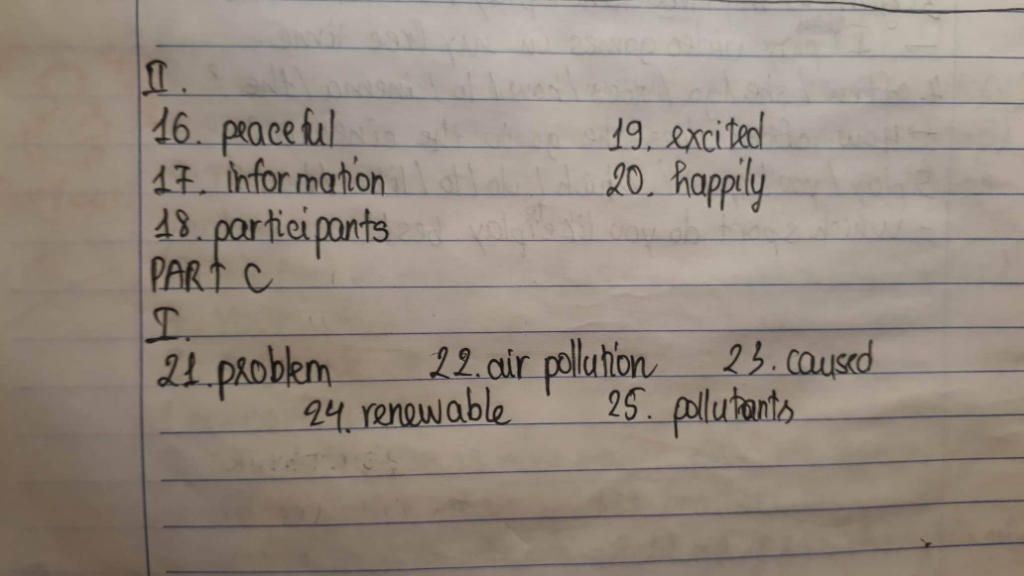 II.
16. peaceful 19. excited
17. information 20. happily
18. participants
PART C
I.
21. problem 22. air pollution 23. caused
24. renewable 25. pollutants